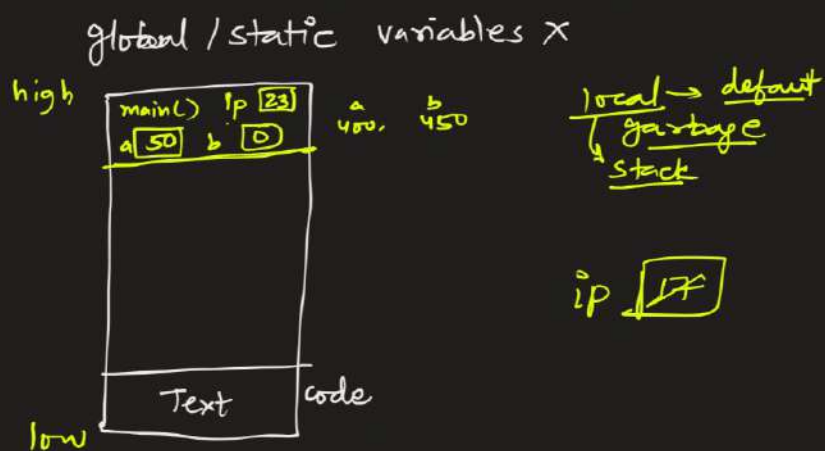 global / static variables X
high
main() ip 23
a 50 b 0
a b
400, 450
local → default
garbage
stack
ip
Text code
low